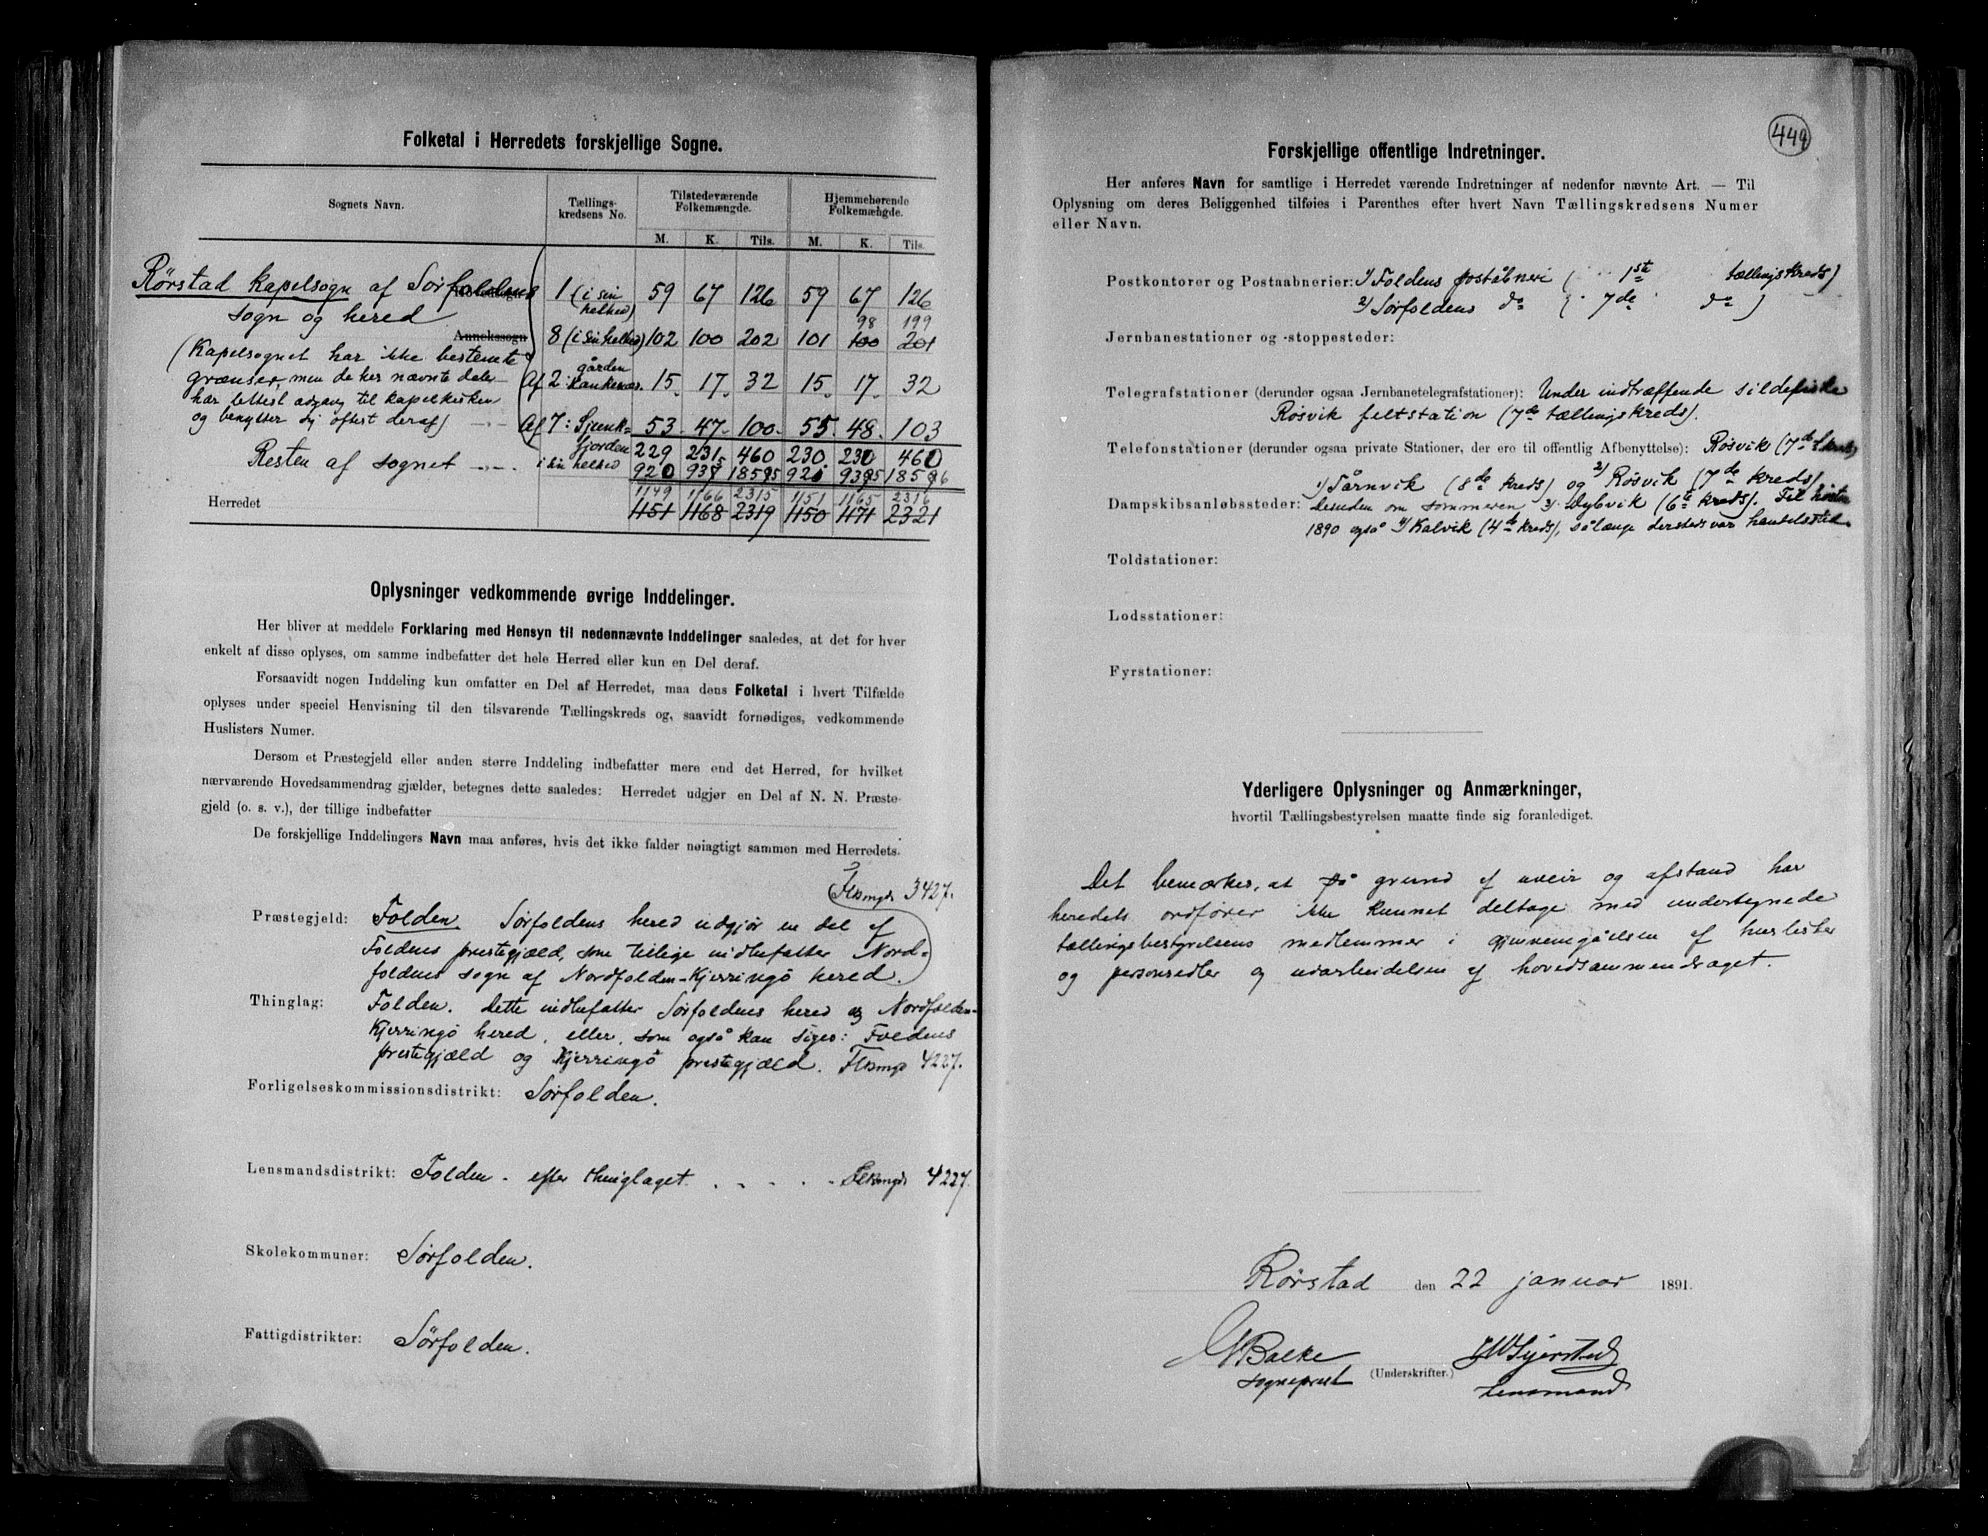 Folketal i Herredets forskjellige Sogne.
Sognets Navn.
Tællings-
kredsens No.
Tilstedeværende
Folkemængde.
Hjemmehørende
Folkemængde.
M. K. Tils. M. K. Tils.
Rørstad kapelsogn af Sørfoldens
sogn og hered
Annekssogn
(Kapelsognet har ikke bestemte
grænser, men de her nævnte dele
har lettest adgang til kapelkirken
og benytter sig oftest deraf)
1 (i sin helhed) 59 67 126 59 67 126
98 199
8 (i sin helhed) 102 100 202 101 100 201
Af 2: gården Kankenæs. 15 17 32 15 17 32
Af 7: Sjunkfjorden 53 47 100 55 48 103
229 231 460 230 230 460
Resten af sognet i sin helhed
1149 1166 2315 1151 1165 2316
Herredet 1151 1168 2319 1150 1171 2321
Oplysninger vedkommende øvrige Inddelinger.
Her bliver at meddele Forklaring med Hensyn til nedennævnte Inddelinger saaledes, at det for hver
enkelt af disse oplyses, om samme indbefatter det hele Herred eller kun en Del deraf.
Forsaavidt nogen Inddeling kun omfatter en Del af Herredet, maa dens Folketal i hvert Tilfælde
oplyses under speciel Henvisning til den tilsvarende Tællingskreds og, saavidt fornødiges, vedkommende
Huslisters Numer.
Dersom et Præstegjeld eller anden større Inddeling indbefatter mere end det Herred, for hvilket
nærværende Hovedsammendrag gjælder, betegnes dette saaledes: Herredet udgjør en Del af N. N. Præste-
gjeld (o. s. v.), der tillige indbefatter
De forskjellige Inddelingers Navn maa anføres, hvis det ikke falder nøiagtigt sammen med Herredets.
Flkmgd 3427.
Præstegjeld: Folden. Sørfoldens hered udgjør en del af
Foldens prestegjæld, som tillige indbefatter Nord-
foldens sogn af Nordfolden-Kjerringö hered.
Thinglag: Folden. Dette indbefatter Sørfoldens hered og Nordfolden-
Kjerringö hered, eller, som også kan siges: Foldens
prestegjæld og Kjerringö prestegjæld. Flkmgd 4227.
Forligelseskommissionsdistrikt: Sørfolden.
Lensmandsdistrikt: Folden - efter thinglaget . . . . . Flkmgd 4227.
Skolekommuner: Sørfolden.
Fattigdistrikter: Sørfolden.
449
Forskjellige offentlige Indretninger.
Her anføres Navn for samtlige i Herredet værende Indretninger af nedenfor nævnte Art. — Til
Oplysning om deres Beliggenhed tilføies i Parenthes efter hvert Navn Tællingskredsens Numer
eller Navn.
Postkontorer og Postaabnerier: 1/ Foldens poståbneri ( 1ste tællingskreds)
2/ Sørfoldens do ( 7de do )
Jernbanestationer og -stoppesteder:
Telegrafstationer (derunder ogsaa Jernbanetelegrafstationer): Under indtræffende sildefiske
Røsvik feltstation (7de tællingskreds).
Telefonstationer (derunder ogsaa private Stationer, der ere til offentlig Afbenyttelse): Røsvik (7de kreds)
1/ Tårnvik (8de kreds) og 2/ Røsvik (7de kreds)
Dampskibsanløbssteder: desuden om sommeren 3/ Dybvik (6te kreds). Til høsten
1890 også 4/ Kalvik (4de kreds), sålænge dersteds var handelssted.
Toldstationer:
Lodsstationer:
Fyrstationer:
Yderligere Oplysninger og Anmærkninger,
hvortil Tællingsbestyrelsen maatte finde sig foranlediget.
Det bemærkes, at på grund af uveir og afstand har
heredets ordfører ikke kunnet deltage med undertegnede
tællingsbestyrelsens medlemmer i gjennemgåelsen af huslister
og personsedler og udarbeidelsen af hovedsammendraget.
Rørstad den 22 januar 1891.
Balke
sogneprest
(Underskrifter.)
Lensmand